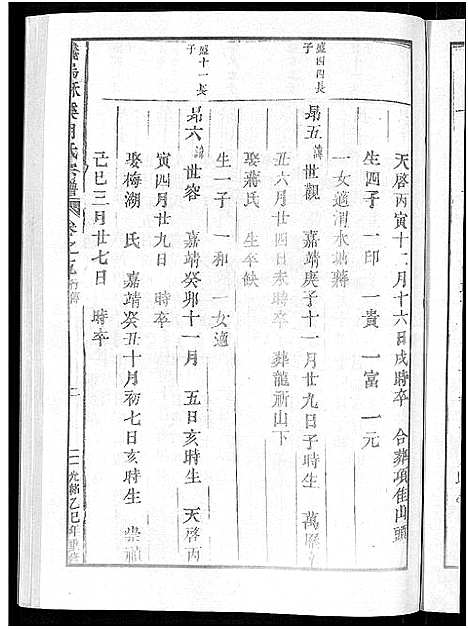 天啓丙寅十二月十六日戌時卒 合葬項隹山頭
生四子 一印 一貴 一富 一元
一女適渭水塘蔣
盛四四長子
昻五 諱世觀 嘉靖庚子十一月廿九日子時生 萬曆
丑六月廿四日未時卒 葬龍祈山下
娶蔣氏 生卒缺
生一子 一和 一女適
盛十一長子
昻六 諱世容 嘉靖癸卯十一月 五日亥時生 天啓丙
寅四月廿九日 時卒
娶梅湖 氏 嘉靖癸丑十月初七日亥時生 崇禎
己巳三月廿七日 時卒
溪 氏宗譜 卷之 行傳 二 光緒乙巳年重修